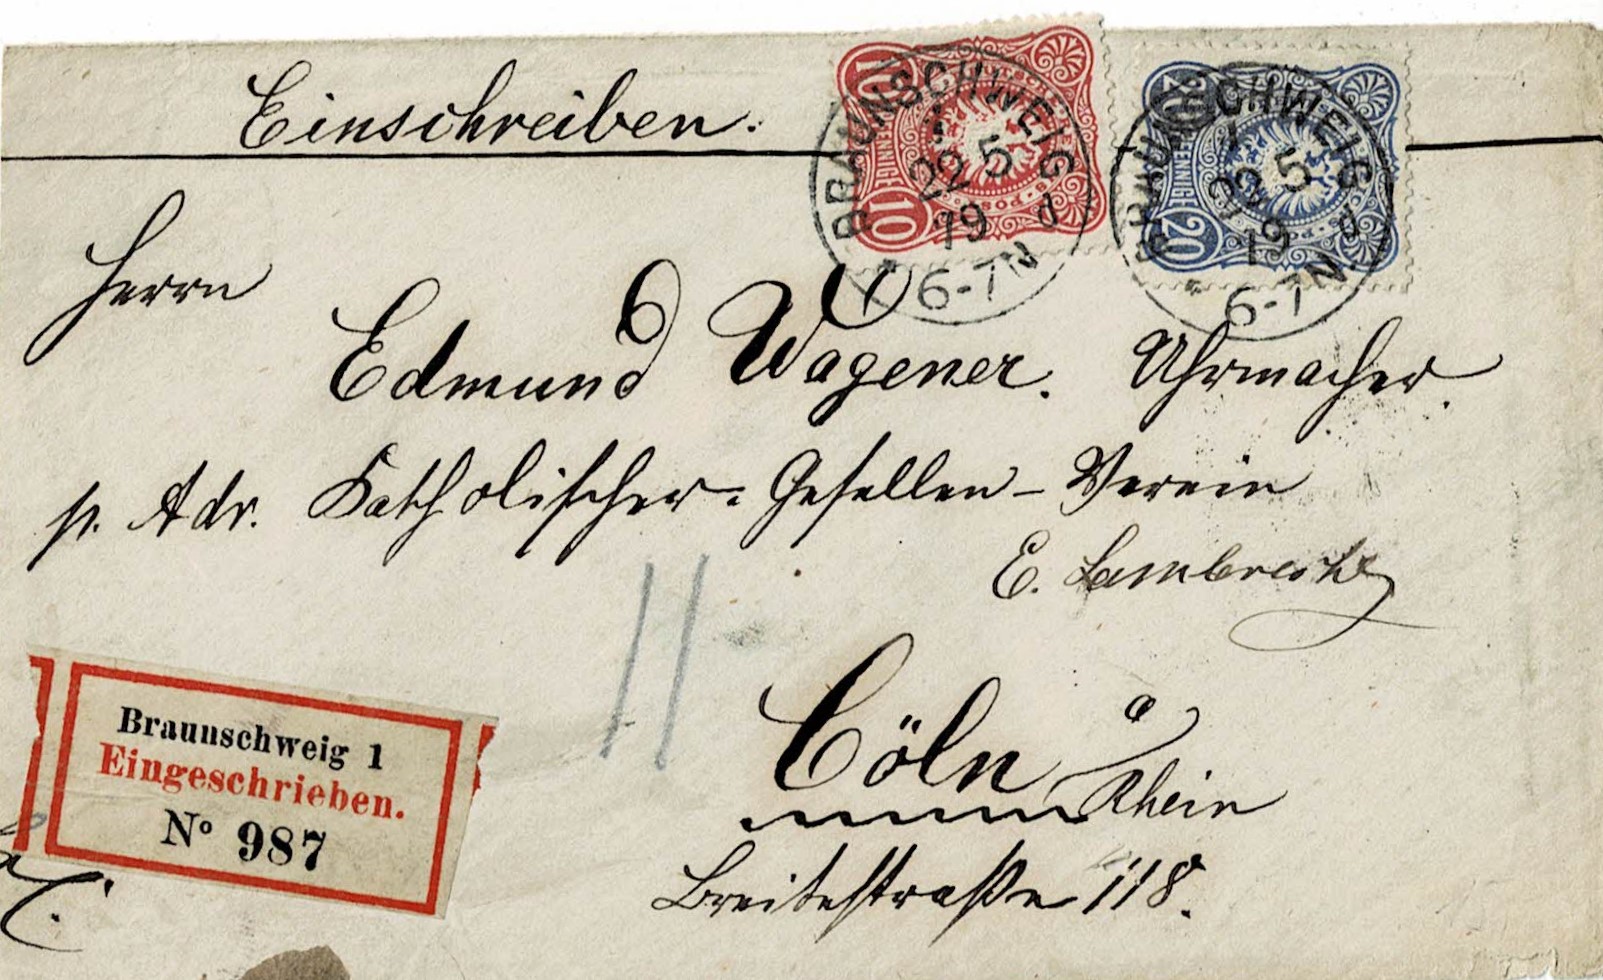 Einschreiben.
10 PFENNIGE 10
20 PFENNIGE 20
BRAUNSCHWEIG
22 5
79 d
6-7N
BRAUNSCHWEIG
22 5
79 d
6-7N
Herrn
Edmund Wagener. Uhrmacher.
p. Adr. Katholischer-Gesellen-Verein
E. Lambrecht
Cöln a
Rhein
Breitestraße 118.
Braunschweig 1
Eingeschrieben.
Nº 987